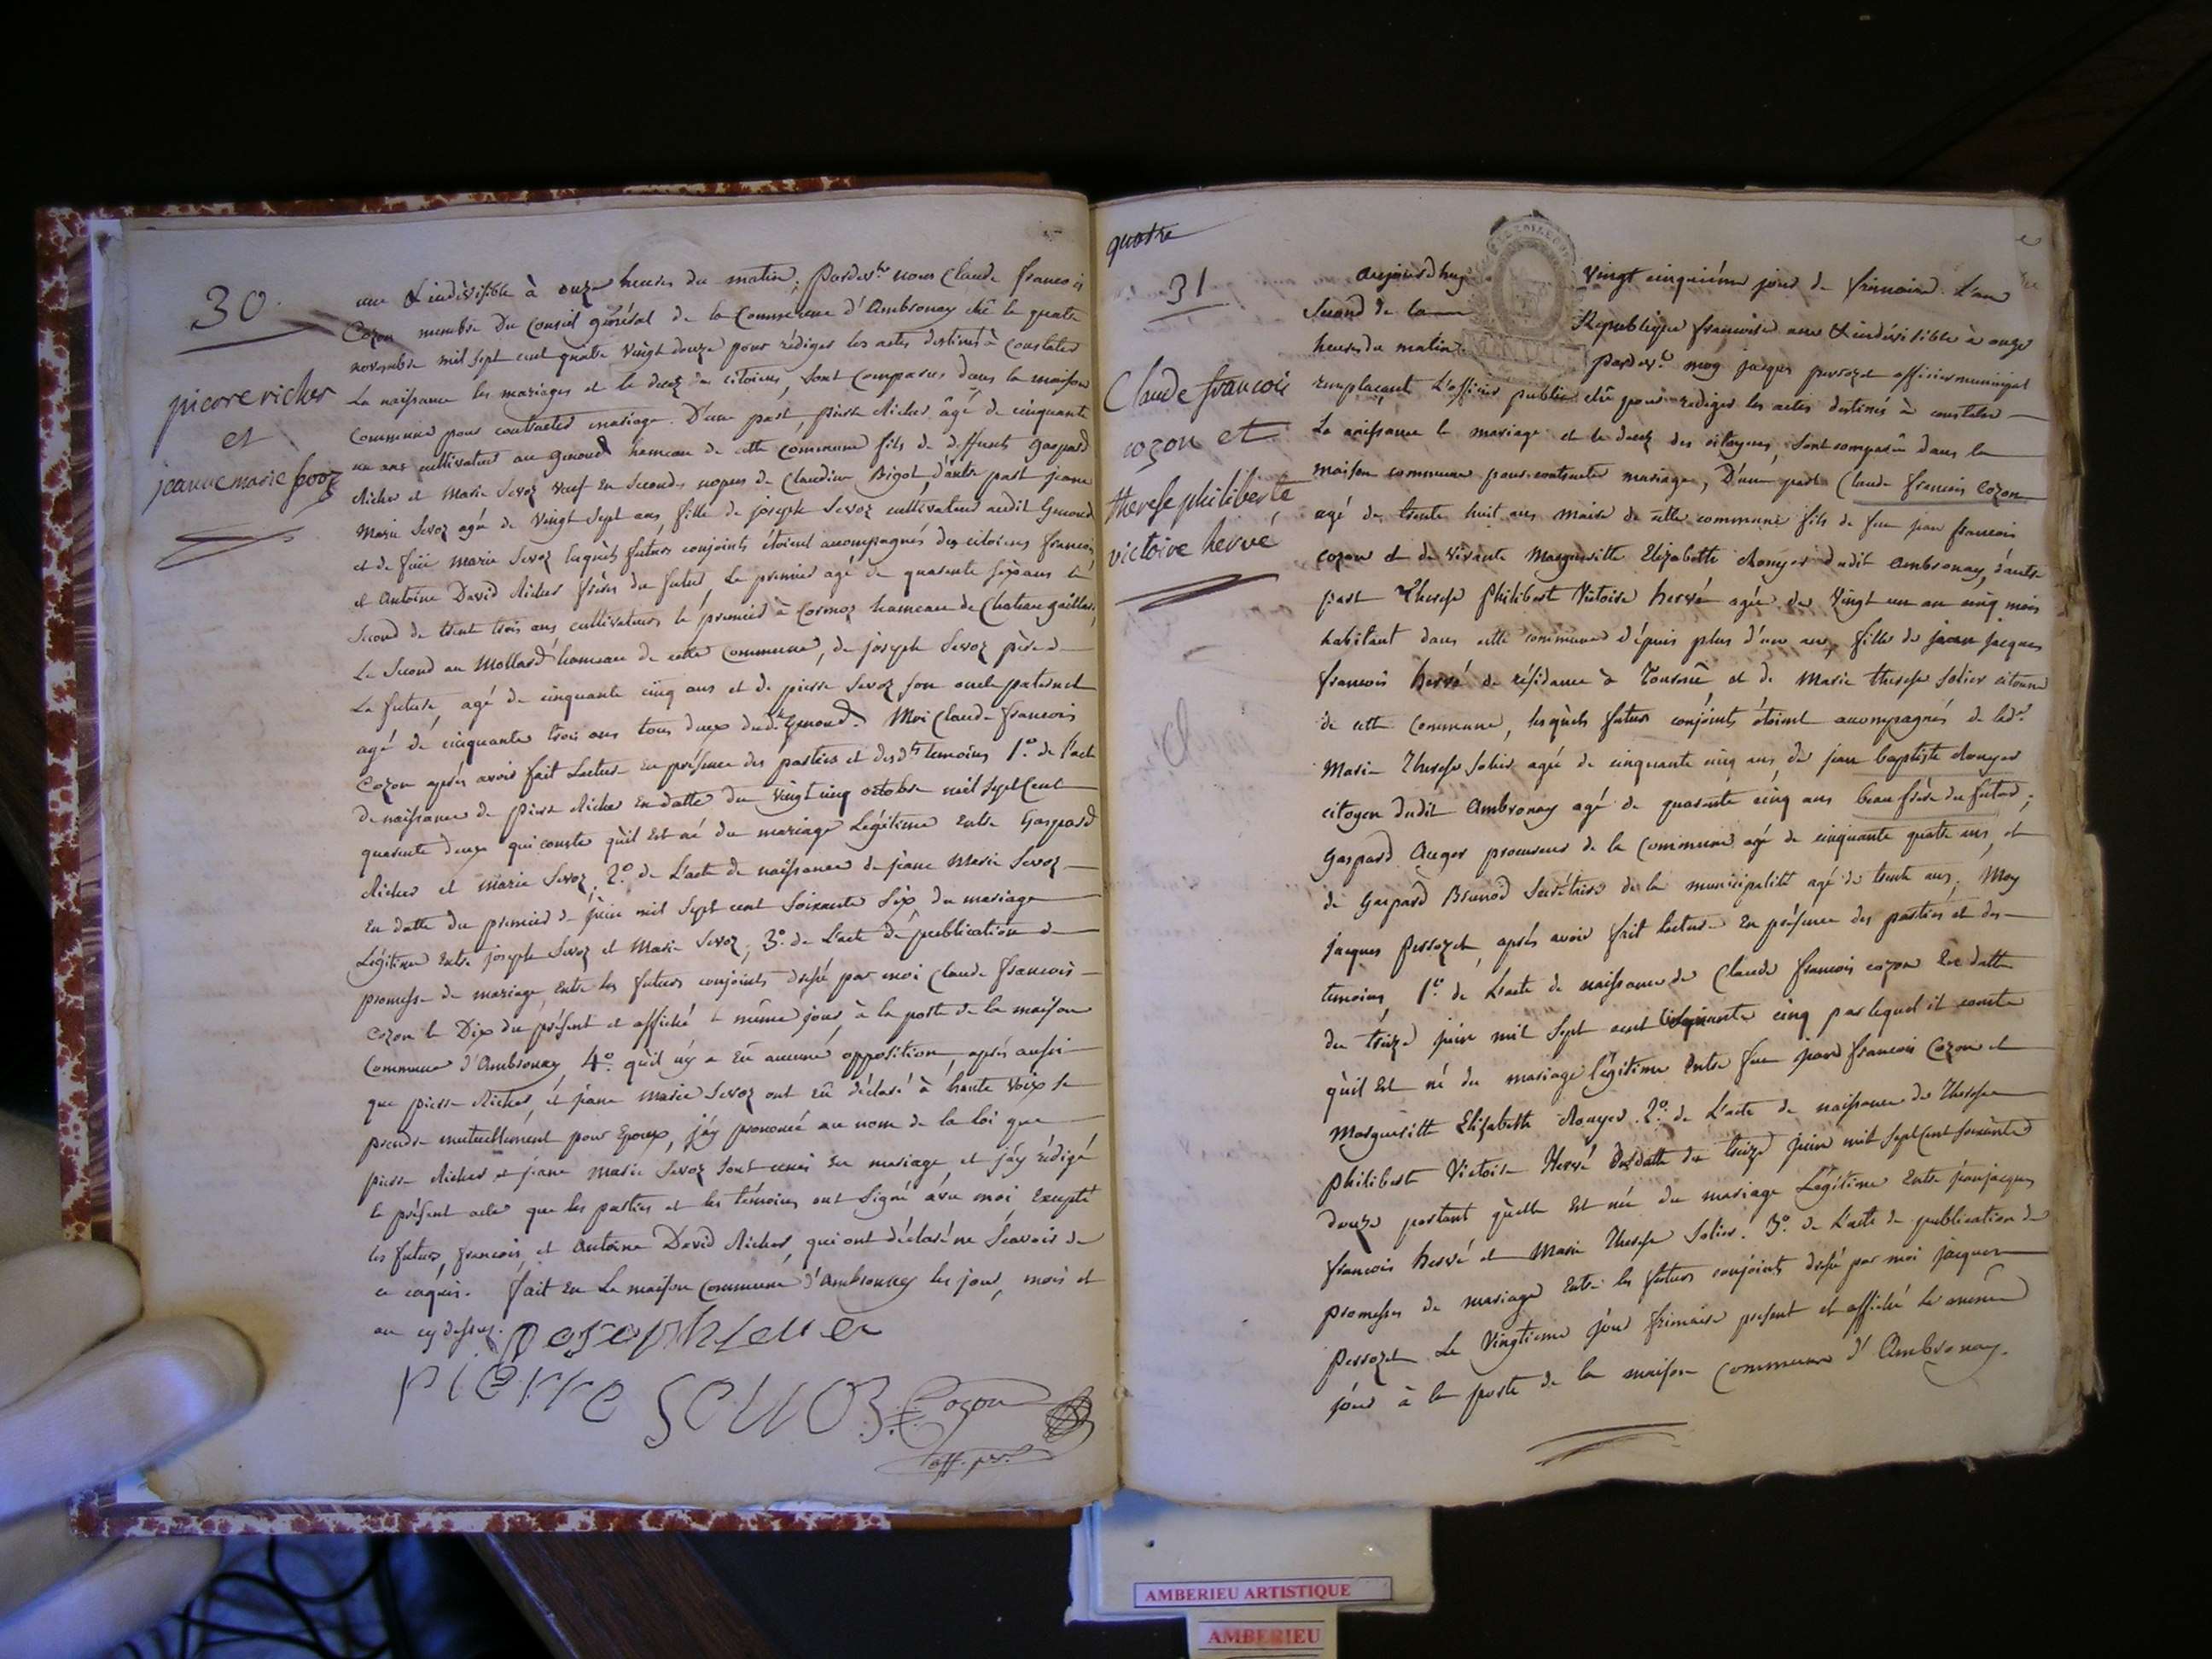 30
pierre richer
et
jeanne marie sevoz
une & indivisible à onze heures du matin, Pardevt nous Claude francois
Cozon membre Du Conseil général de la Commune d'Ambronay élu le quatre
novembre mil sept cent quatre Vingt douze pour rédiger les actes destinés à constater
La naissance les mariages et le decez des citoiens, sont Comparus dans la maison
Commune pour contracter mariage. D'une part, pierre Richer, âgé de cinquante
un ans cultivateur au genoud hameau de cette Commune fils de deffunts gaspard
Richer et Marie Sevoz Veuf En Secondes nopces de Claudine Bigot, d'autre part jeane
Marie Sevoz agée de Vingt Sept ans, fille de joseph Sevoz cultivateur audit Genoud
et de fuë marie Sevoz lesquels futurs conjoints étoient accompagnés des citoiens francois
et Antoine David Richer frères du futur, Le premier agé de quarente six ans le
Second de trente trois ans cultivateurs le premier à Cormoz hameau de Chateau gaillard,
Le Second au Mollard hameau de cette Commune, de joseph Sevoz père de
La future, agé de cinquante cinq ans et de pierre Sevoz son oncle paternel
agé de cinquante trois ans tous deux dudt Genoud. Moi Claude francois
Cozon après avoir fait Lecture En présence des parties et desdts temoins 1.º de l'acte
De naissance de Pierre Richer En datte du Vingt cinq octobre mil Sept Cent
quarente deux qui conste qu'il Est né du mariage Légitime Entre Gaspard
Richer et marie Sevoz, 2.º de L'acte de naissance de jeane Marie Sevoz
En datte du premier de juin mil Sept cent Soixante Six du mariage
Légitime Entre joseph Sevoz et Marie Sevoz; 3.º de L'acte de publication de
promesse de mariage, Entre les futurs conjoints dressé par moi Claude francois
Cozon le Dix du présent et affiché le même jour, à la porte de la maison
Commune d'Ambronay 4.º qu'il n'y a Eû aucune opposition, après aussi
que pierre Richer, et jeane marie Sevoz ont Eû déclaré à haute Voix se
prendre mutuellement pour Epoux, j'ay prononcé au nom de la loi que
pierre Richer et jeane Marie Sevoz Sont unis En mariage et j'ay rédigé
le présent acte que les parties et les témoins ont Signé avec moi Excepté
les futurs, francois, et Antoine David Richer, qui ont déclaré ne Scavoir de
ce enquis. fait En La maison Commune d'Ambronay les jour, mois et
an cy dessus.
pierre sevoz Cozon
off. p.
quatre
31
Claude francois
cozon et
therese philiberte
victoire hervé
Aujourdhuy Vingt cinquième jour de frimaire L'an
Second de la Republique francoise une & indivisible à onze
heures du matin. Pardevt moy jacques perrozet officier municipal
remplacant L'officier public élû pour rediger les actes destinés à constater
La naissance le mariage et le decez des citoyens, sont comparû dans la
maison commune pour contracter mariage, D'une part Claude francois Cozon
agé de trente huit ans Maire de cette commune fils de feu jean francois
cozon et de Vivante Margueritte Elizabette Rouyer dudit Ambronay, d'autre
part Therese Philibert Victoire hervé agée de Vingt un an cinq mois
habitant dans cette commune d'épuis plus d'un an, fille de jean jacques
francois hervé de résidance à et de Marie therese Solier citoienne
de cette Commune, lesquels futurs conjoints étoient accompagnés de ladte
Marie Therese Solier agée de cinquante cinq ans, de jean baptiste Rouyer
citoyen dudit Ambronay agé de quarente cinq ans beau frère du futur;
Gaspard Auger procureur de la Commune agé de cinquante quatre ans, et
de Gaspard Brunod Secrétaire de la municipalité agé de trente ans; Moy
jacques Perrozet, après avoir fait lecture En présence des parties et des
temoins, 1.º de L'acte de naissance de Claude francois cozon En datte
du treize juin mil Sept cent cinquante cinq par lequel il conste
qu'il Est né du mariage légitime Entre feu jean francois Cozon et
Margueritte Elizabette Rouyer. 2.º de L'acte de naissance de Therese
Philibert Victoire Hervé En datte du treize juin mil Sept Cent Soixante
douze portant qu'elle Est née du mariage Legitime Entre jean jacques
francois hervé et Marie Therese Solier. 3.º de L'acte de publication de
promesses de mariage Entre les futurs conjoints dressé par moi jacques
Perrozet Le Vingtieme jour frimaire present et affiché le meme
jour à la porte de la maison Commune d'Ambronay.
AMBERIEU ARTISTIQUE
AMBERIEU